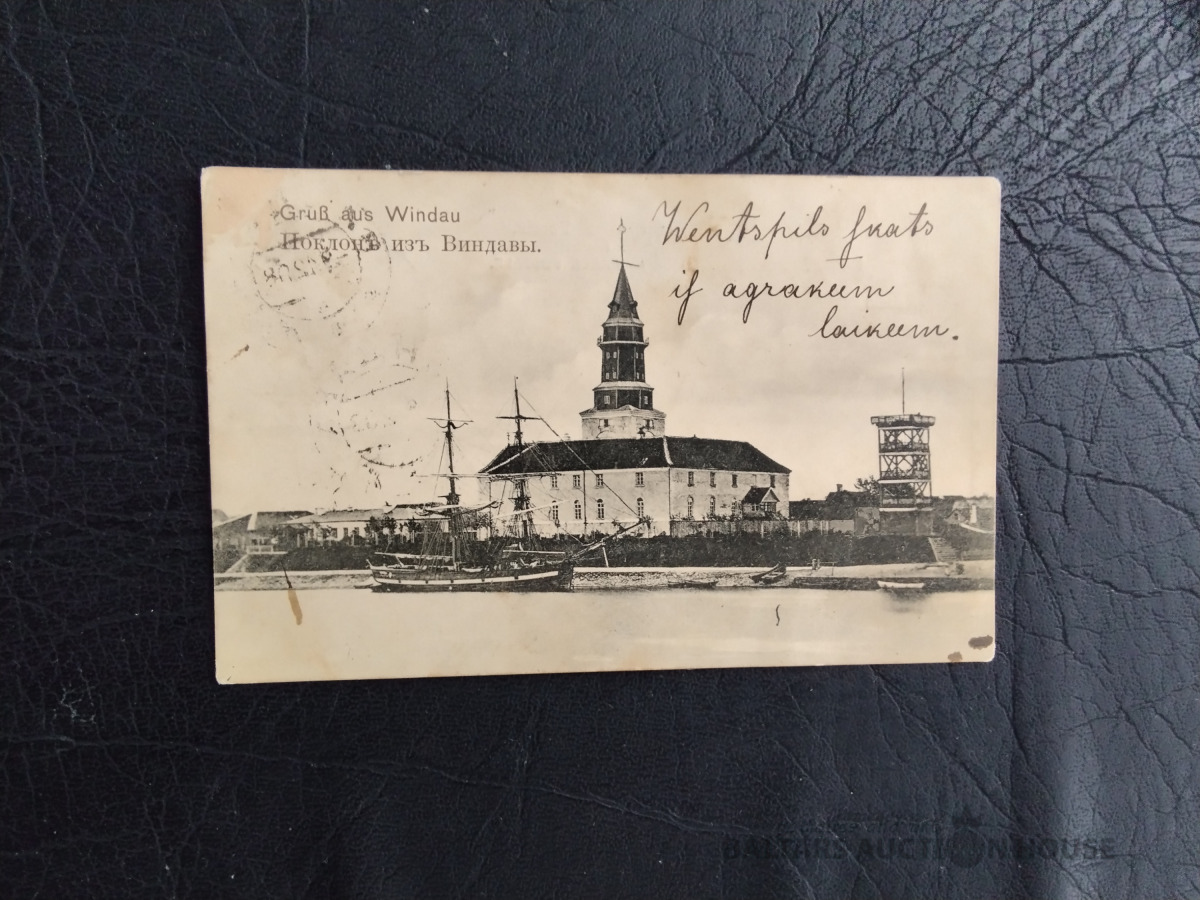 Gruß aus Windau
Поклонъ изъ Виндавы.
Wentspils ſkats
iſ agrakeem
laikeem.
BALTARS AUCTION HOUSE